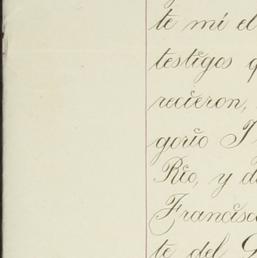 te mi el
testigos q
recieron,
gorio I
Rio, y d
Francisc
te del G